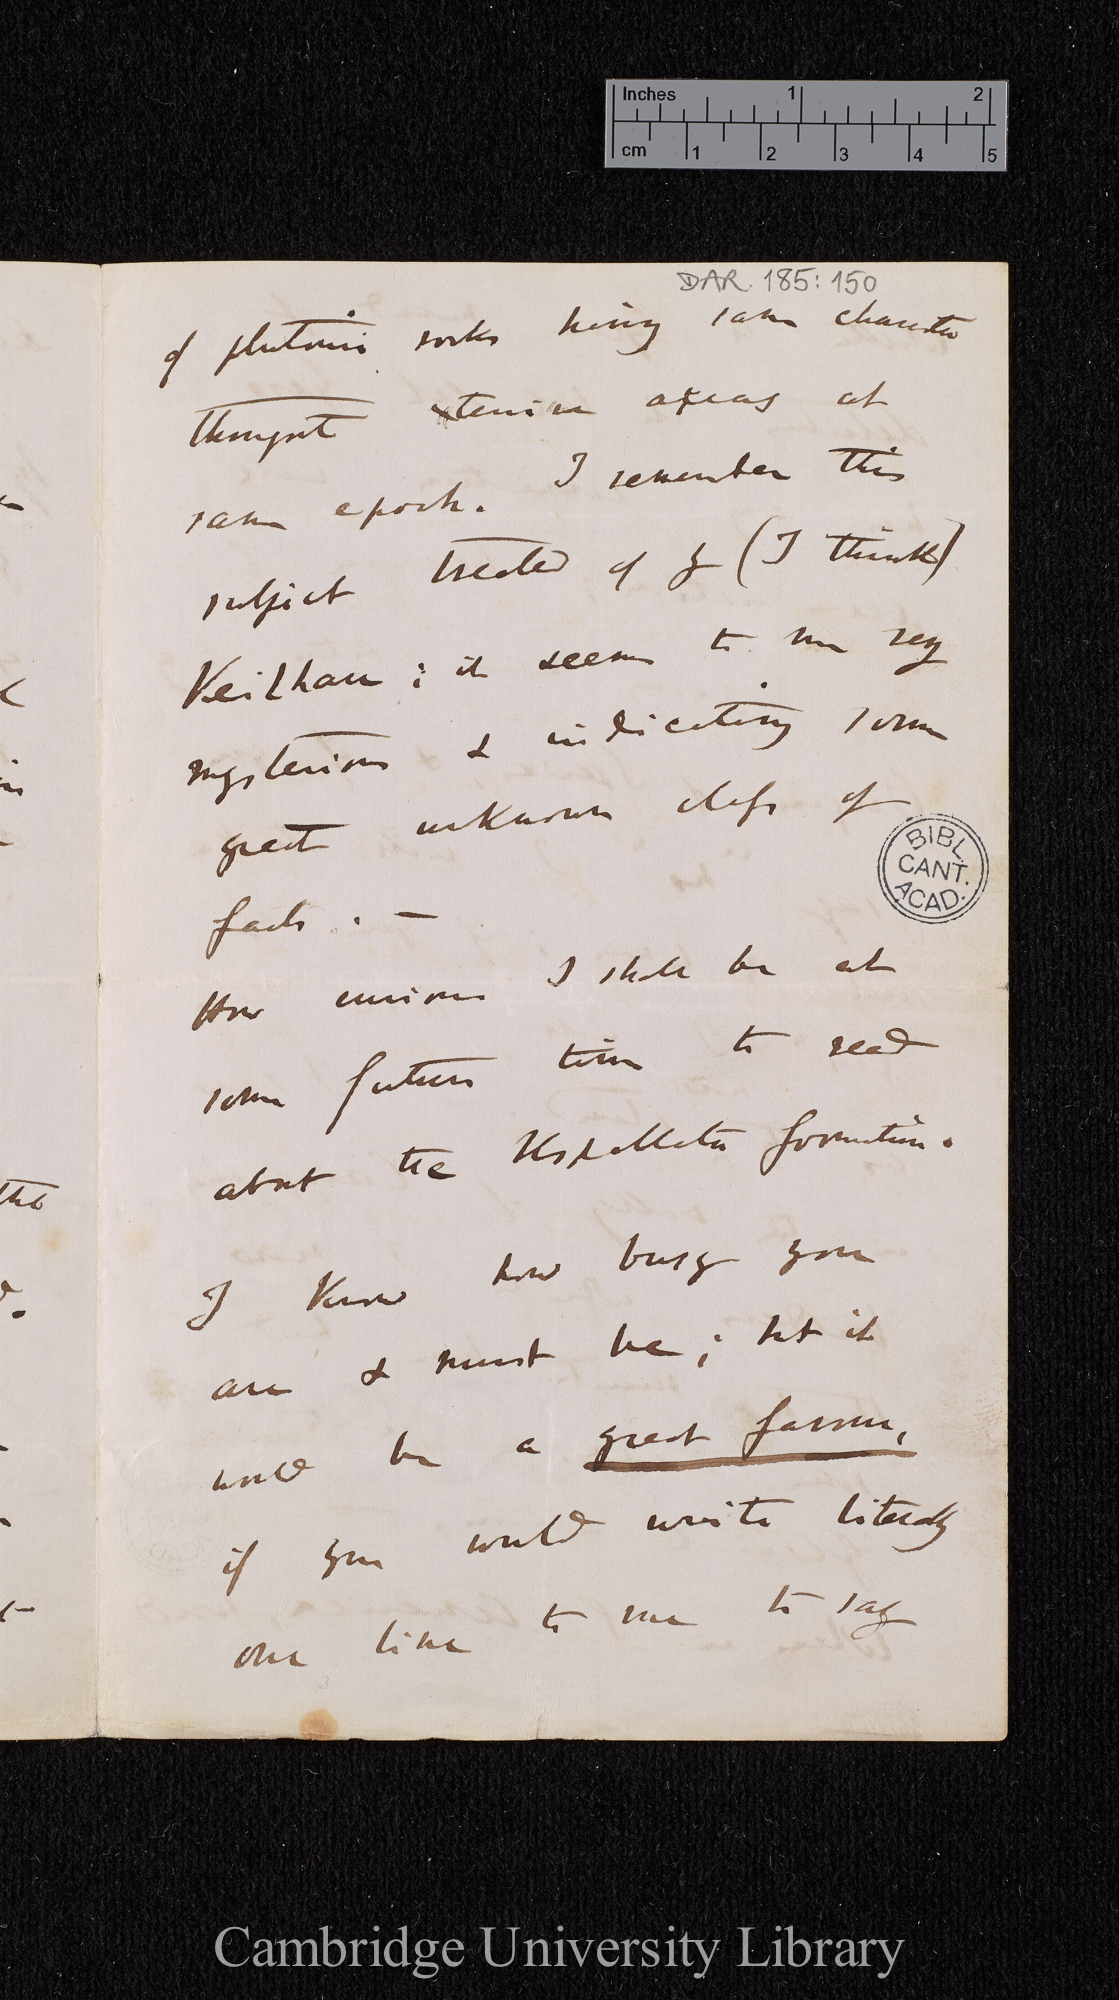 Inches 1 2
cm 1 2 3 4 5
DAR. 185: 150
of plutonic rocks being same character
throughout extensive areas at
same epoch. I remember this
subject treated of by (I think)
Keilhau; it seems to me very
mysterious & indicating some
great unknown class of
facts. —
How curious I shall be at
some future time to read
about the Uspallata formation.
I know how busy you
are & must be; but it
would be a great favour,
if you would write literally
one line to me to say
BIBL.
CANT.
ACAD.
the
Cambridge University Library